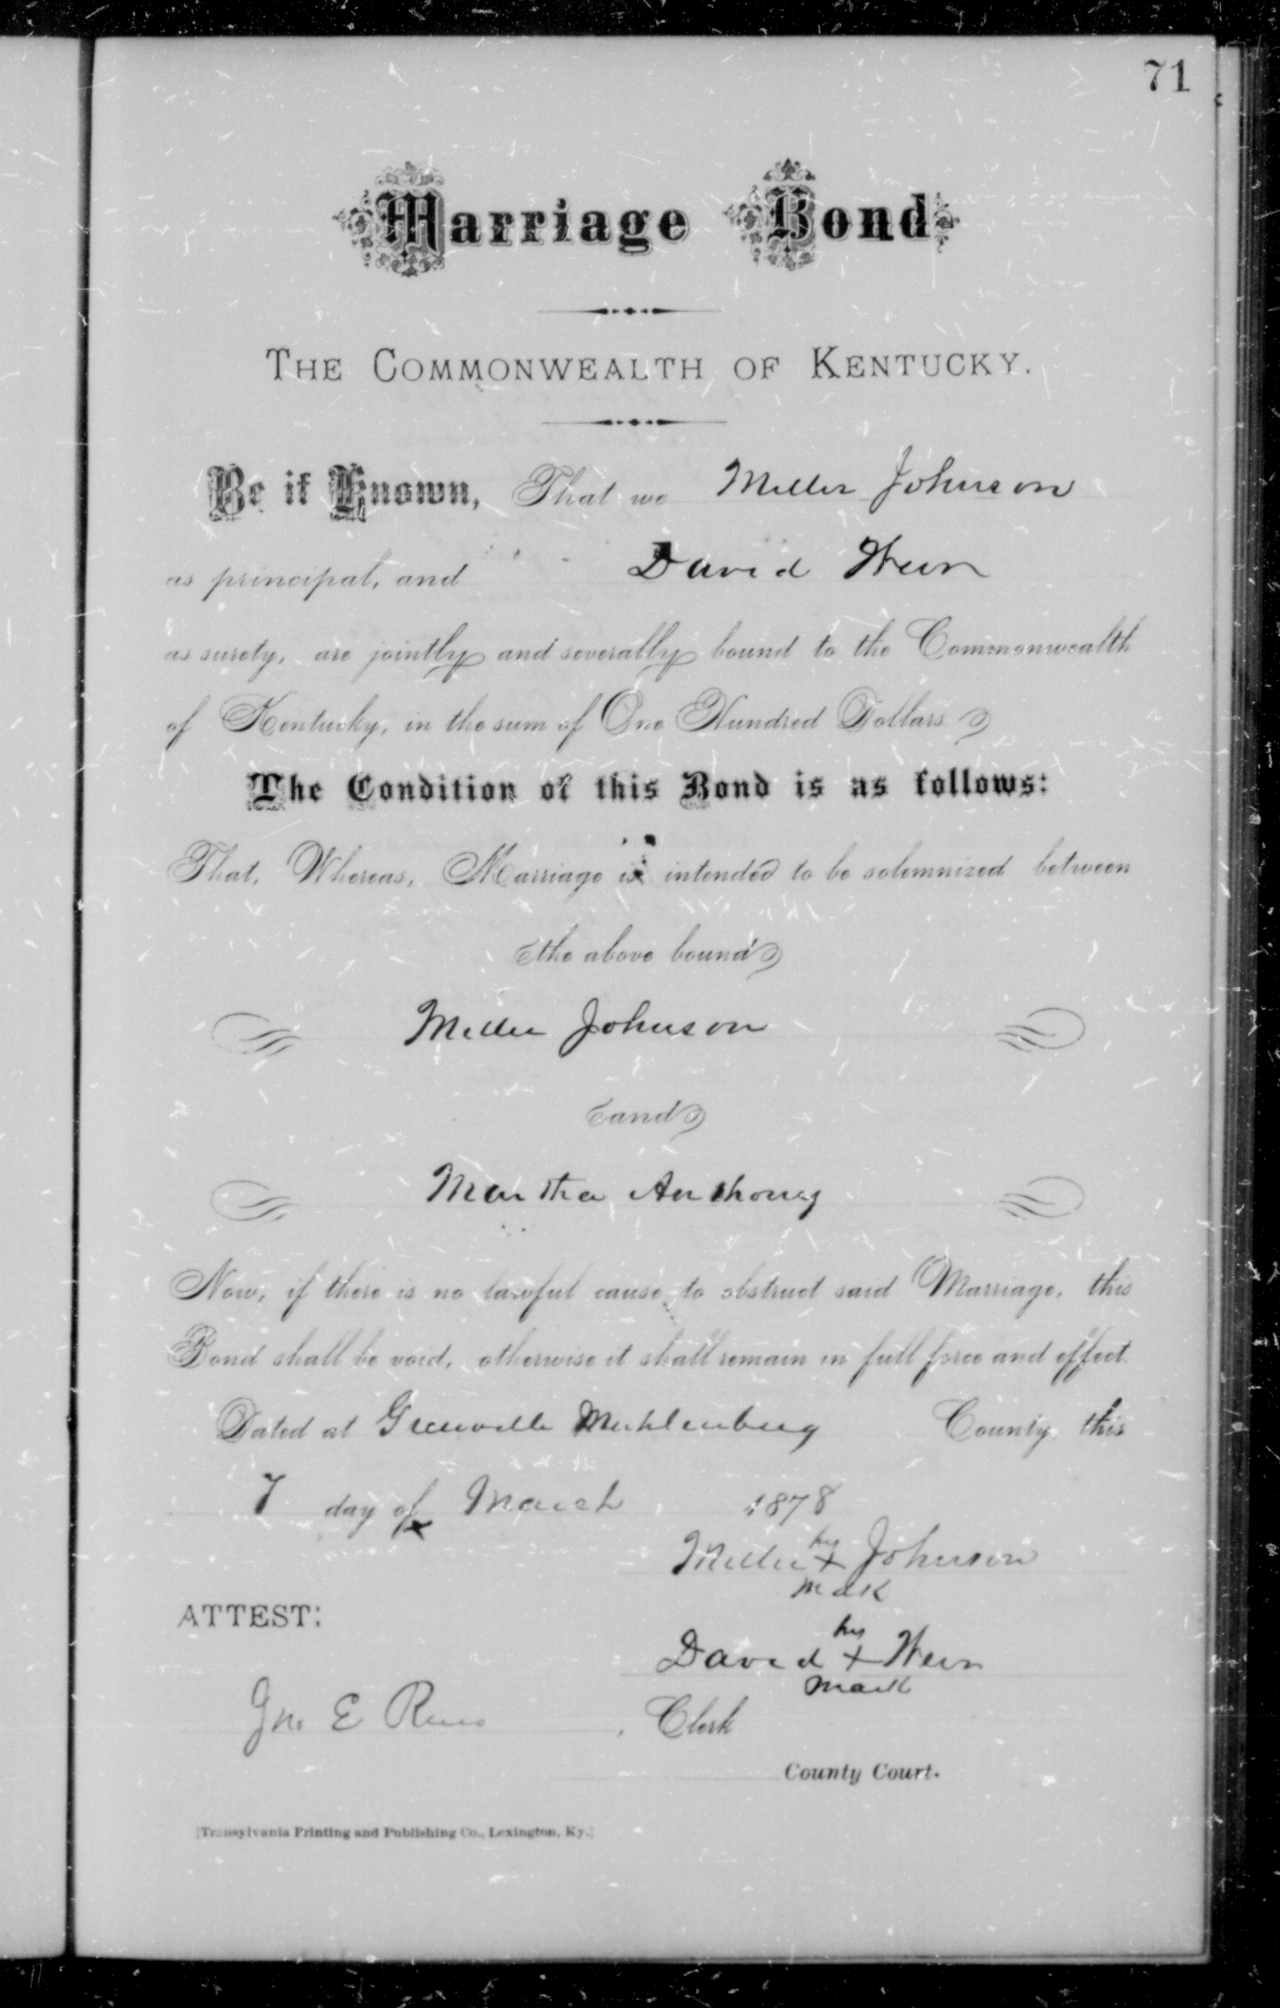 71
Marriage Bond
THE COMMONWEALTH OF KENTUCKY.
Be it Known, That we Miller Johnson
as principal, and David Weir
as surety, are jointly and severally bound to the Commonwealth
of Kentucky, in the sum of One Hundred Dollars
The Condition of this Bond is as follows:
That, Whereas, Marriage is intended to be solemnized between
the above bound
Miller Johnson
and
Martha Anthony
Now, if there is no lawful cause to obstruct said Marriage, this
Bond shall be void, otherwise it shall remain in full force and effect.
Dated at Greenville Muhlenburg County this
7 day of March 1878
his
Miller x Johnson
mark
ATTEST:
his
David x Weir
mark
Jno E Reno, Clerk
County Court.
[Transylvania Printing and Publishing Co., Lexington, Ky.]